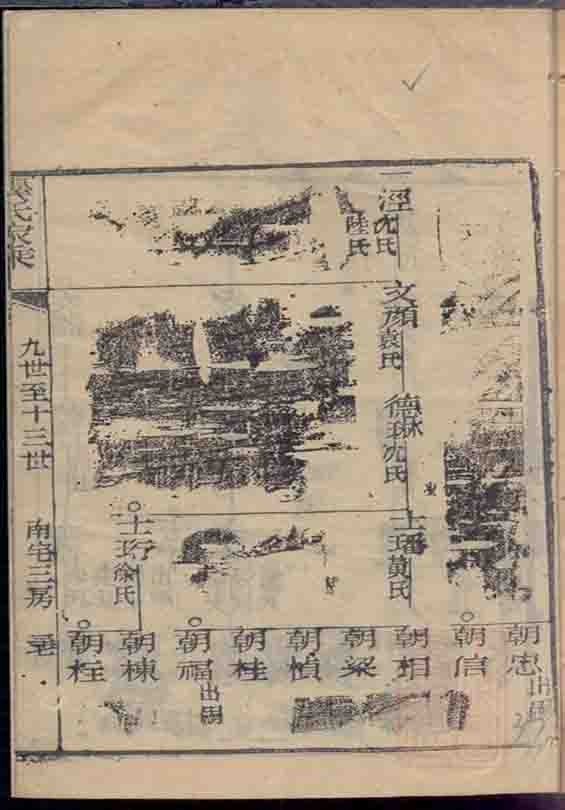 涇 尤氏 陸氏
文顔 袁氏
德琳 尤氏
士璠 黄氏
士珩 徐氏
朝忠 出嗣
朝信
朝相
朝梁
朝楨
朝桂
朝福 出嗣
朝棟
朝柱
氏家乘
九世至十三世
南宅三房